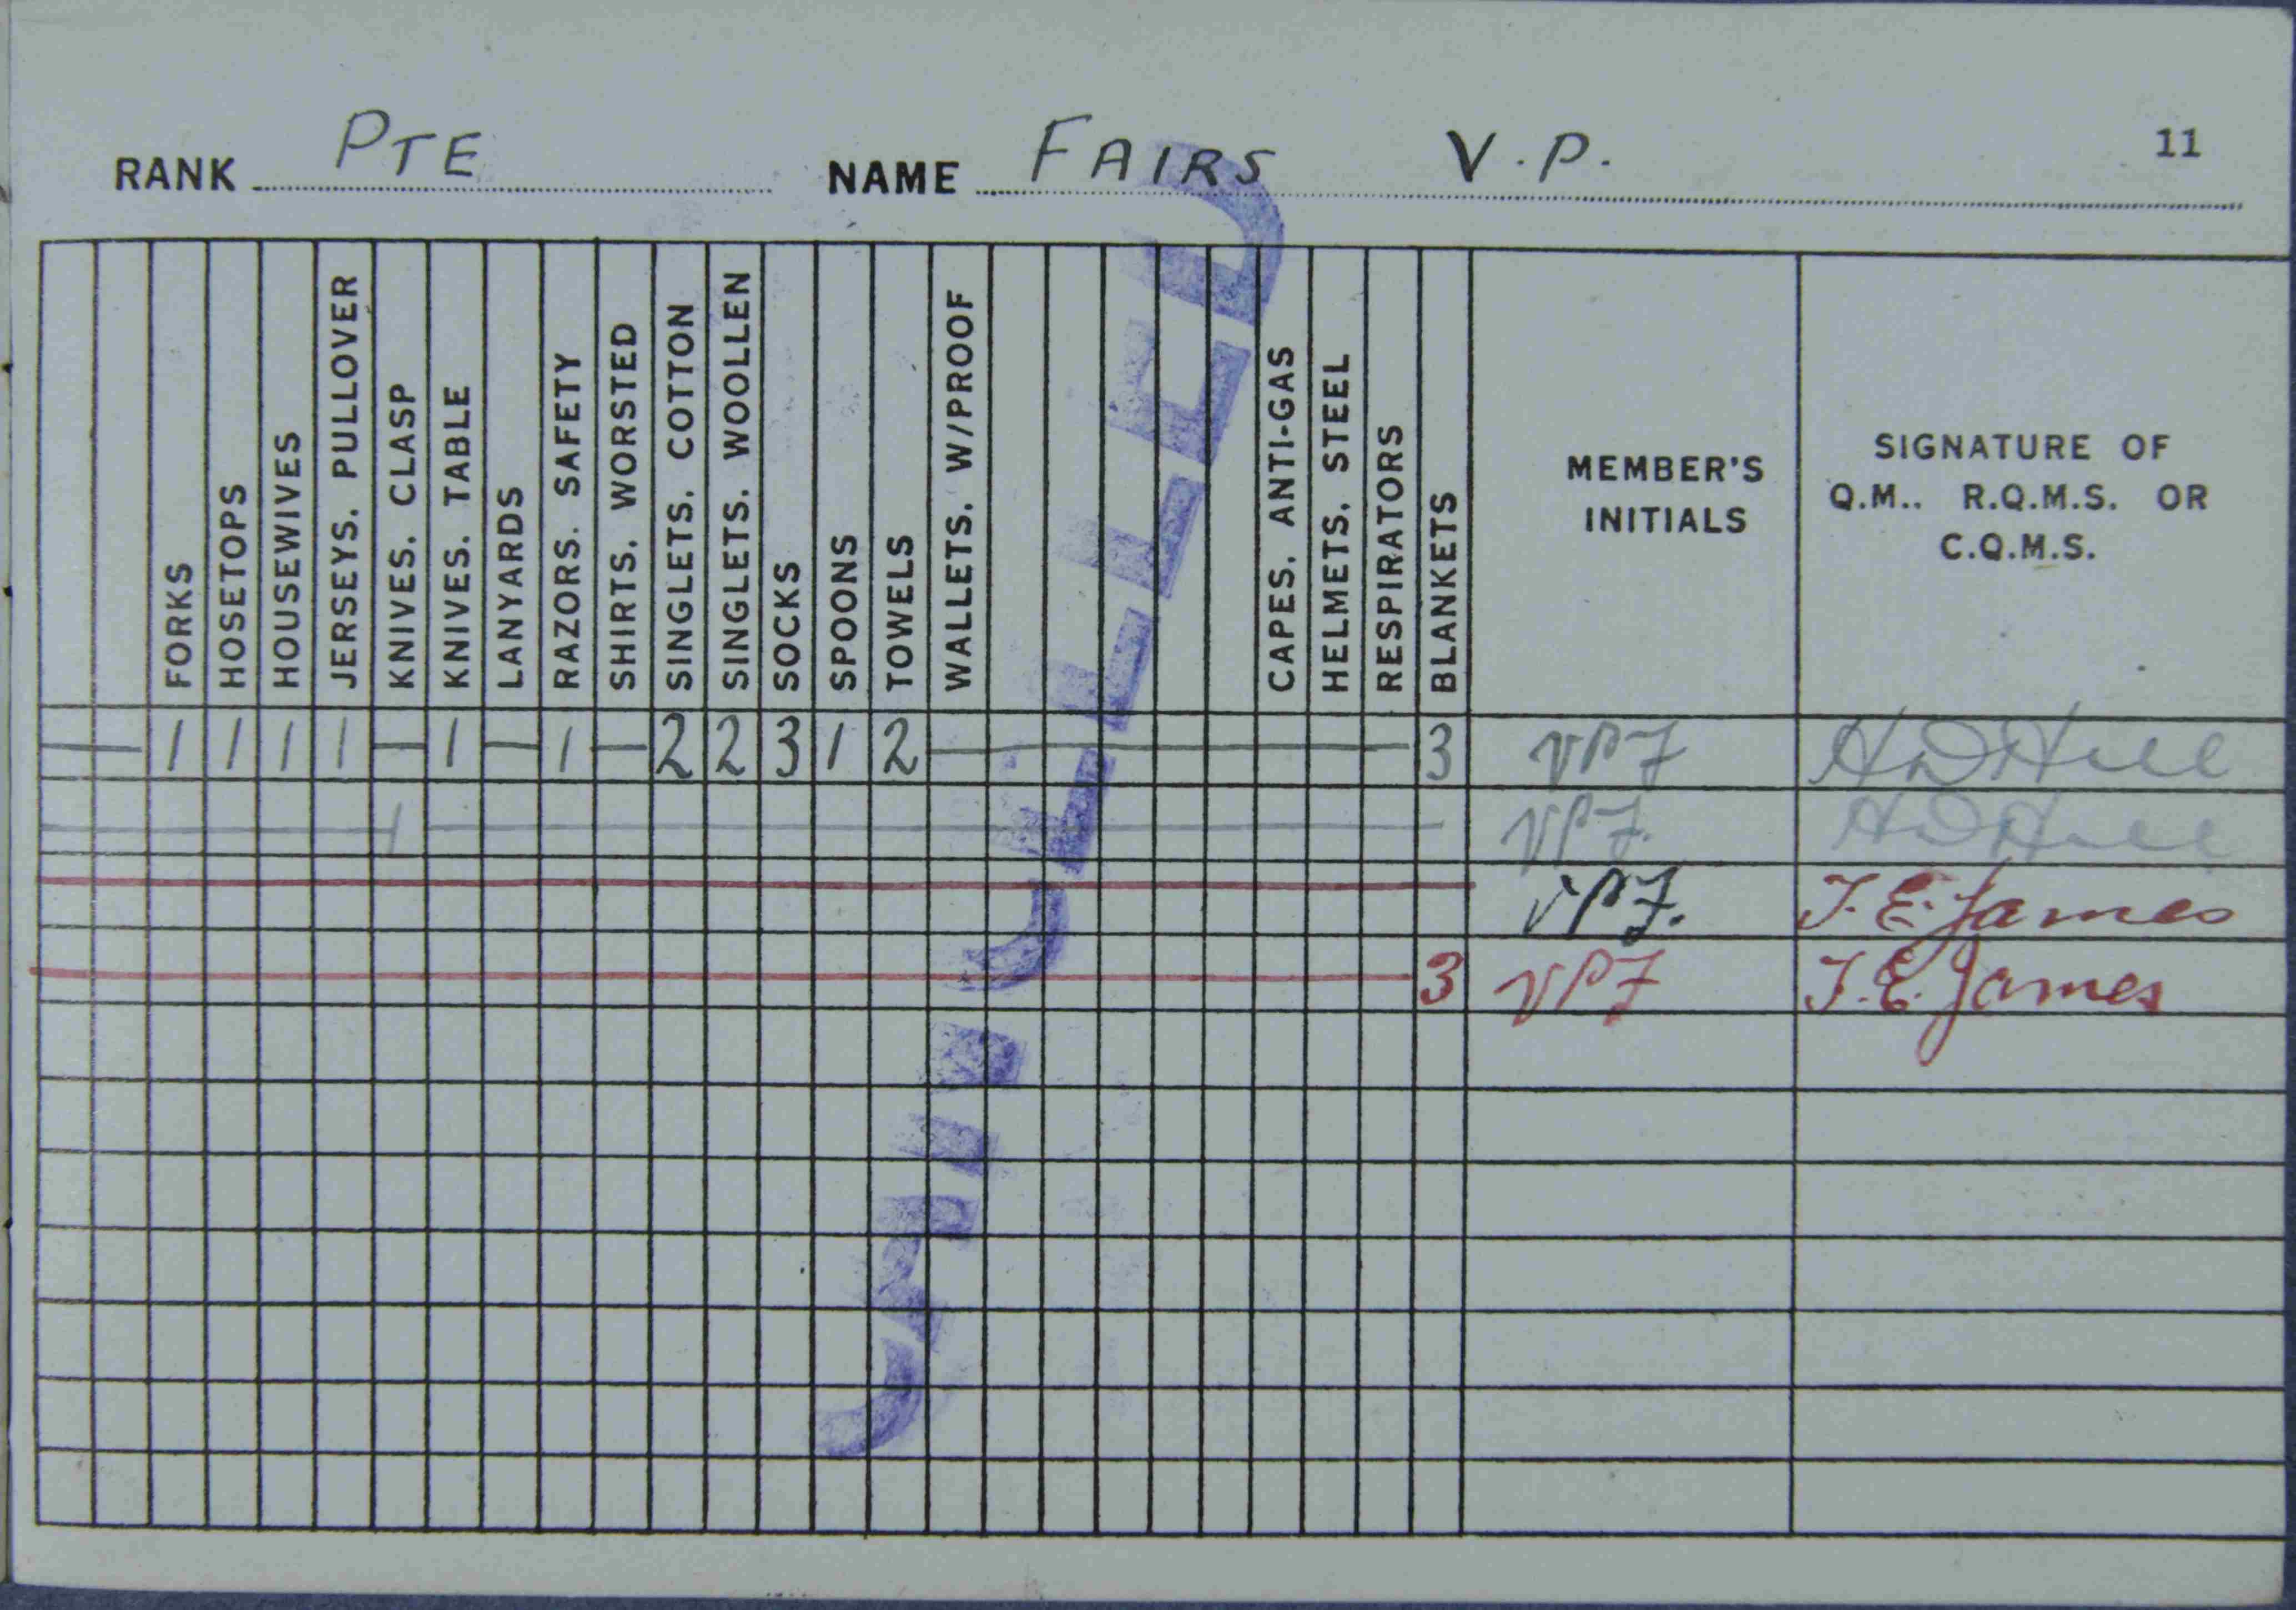 11
RANK PTE NAME FAIRS V.P.
FORKS
HOSETOPS
HOUSEWIVES
JERSEYS. PULLOVER
KNIVES. CLASP
KNIVES. TABLE
LANYARDS
RAZORS. SAFETY
SHIRTS. WORSTED
SINGLETS. COTTON
SINGLETS. WOOLLEN
SOCKS
SPOONS
TOWELS
WALLETS. W/PROOF
CAPES. ANTI-GAS
HELMETS. STEEL
RESPIRATORS
BLANKETS
MEMBER'S
INITIALS
SIGNATURE OF
Q.M.. R.Q.M.S. OR
C.Q.M.S.
— 1 1 1 1 — 1 — 1 — 2 2 3 1 2 — 3 VPF HDHill
— 1 — VPF. HDHill
— VPF. T.E. James
— 3 VPF T.E. James
CANCELLED